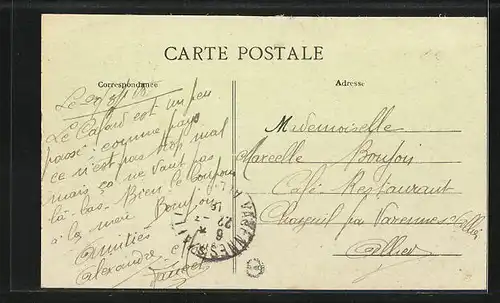 CARTE POSTALE
Correspondance
Adresse
Le
Le Cafard est un peu
passé: comme pays
ce n'est pas trop mal
mais ça ne vaut pas
là-bas. Bien le bonjour
à la mère Boujon
Amitiés
Alexandre
Mademoiselle
Marcelle Boujon
Café Restaurant
par Varennes s/ Allier
Allier
VARENNES
6
22